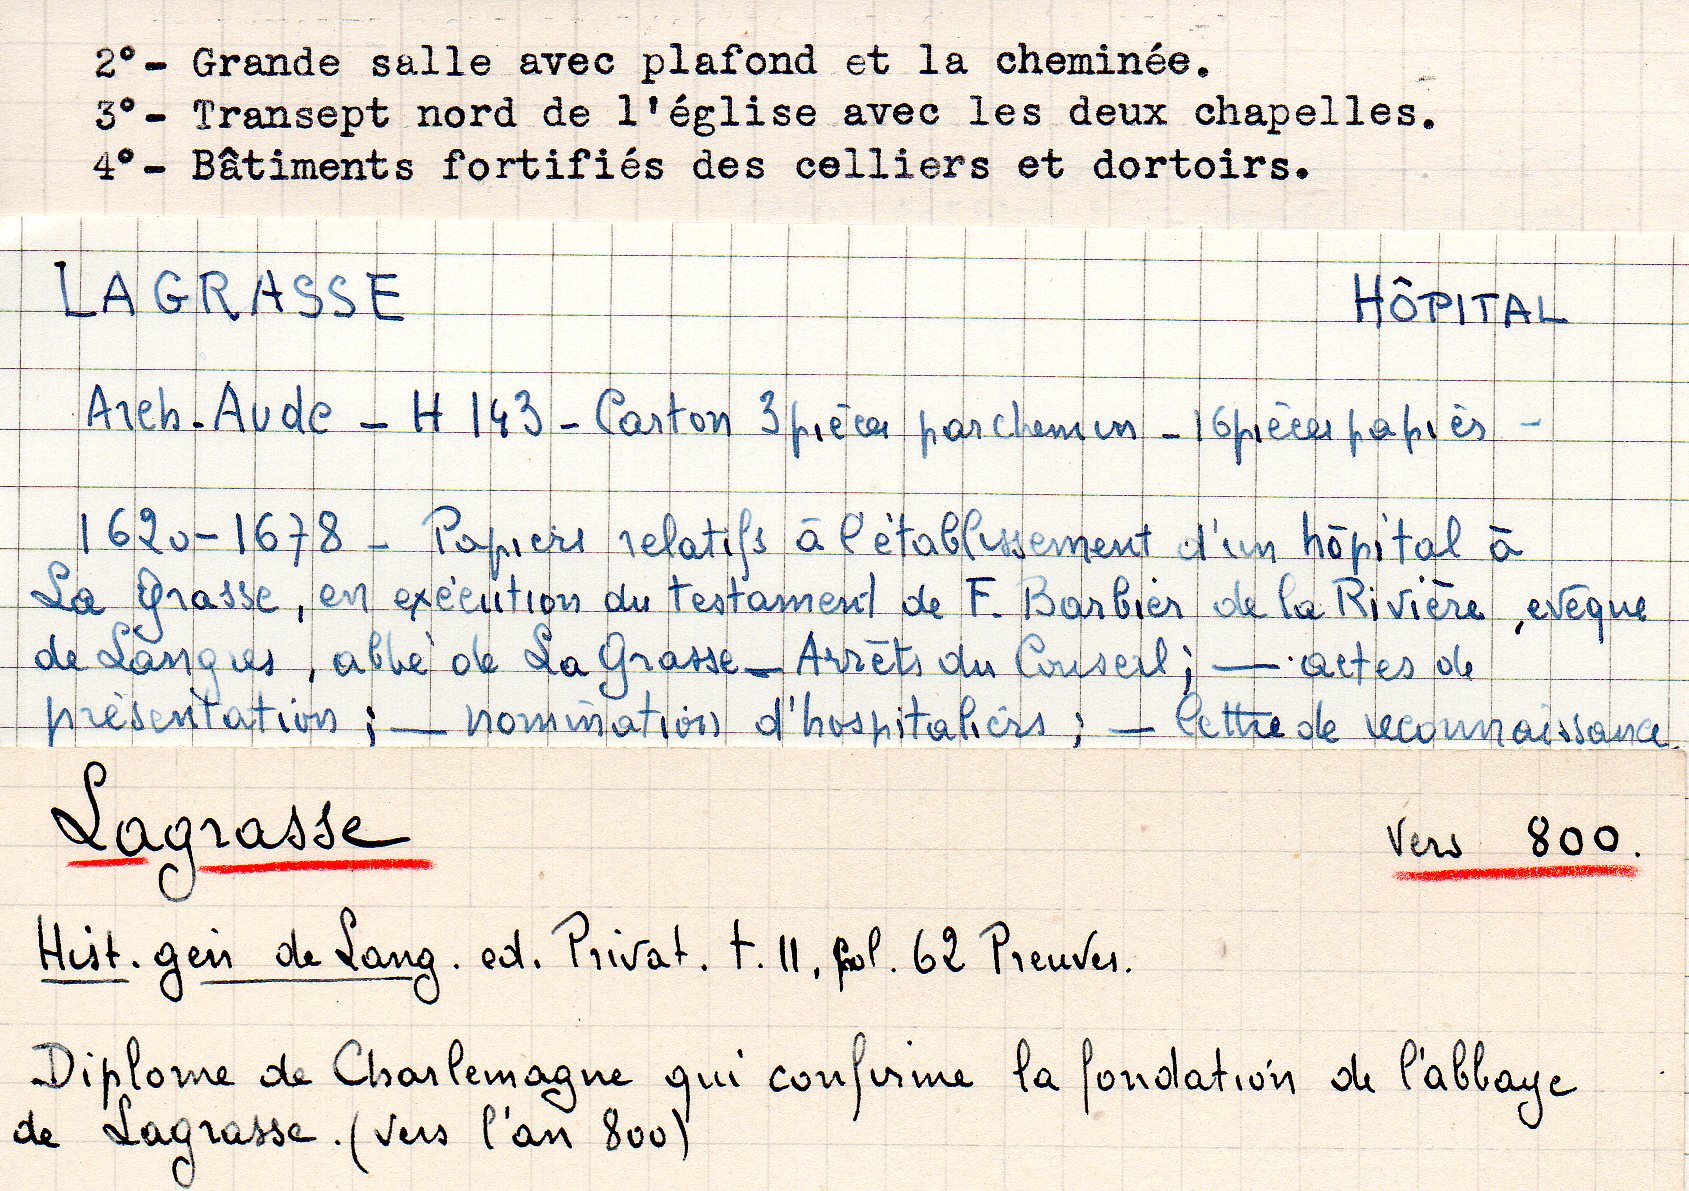 2°- Grande salle avec plafond et la cheminée.
3°- Transept nord de l'église avec les deux chapelles.
4°- Bâtiments fortifiés des celliers et dortoirs.
LAGRASSE HÔPITAL
Arch. Aude - H 143 - Carton 3 pièces parchemin - 16 pièces papiers -
1620-1678 - Papiers relatifs à l'établissement d'un hôpital à
La Grasse, en exécution du testament de F. Barbier de la Rivière, evêque
de Langres, abbé de La Grasse - Arrêts du Conseil; — actes de
présentation; — nomination d'hospitaliers; — lettre de reconnaissance.
Lagrasse Vers 800.
Hist. gén de Lang. ed. Privat. t. II, col. 62 Preuves.
Diplome de Charlemagne qui confirme la fondation de l'abbaye
de Lagrasse. (vers l'an 800)